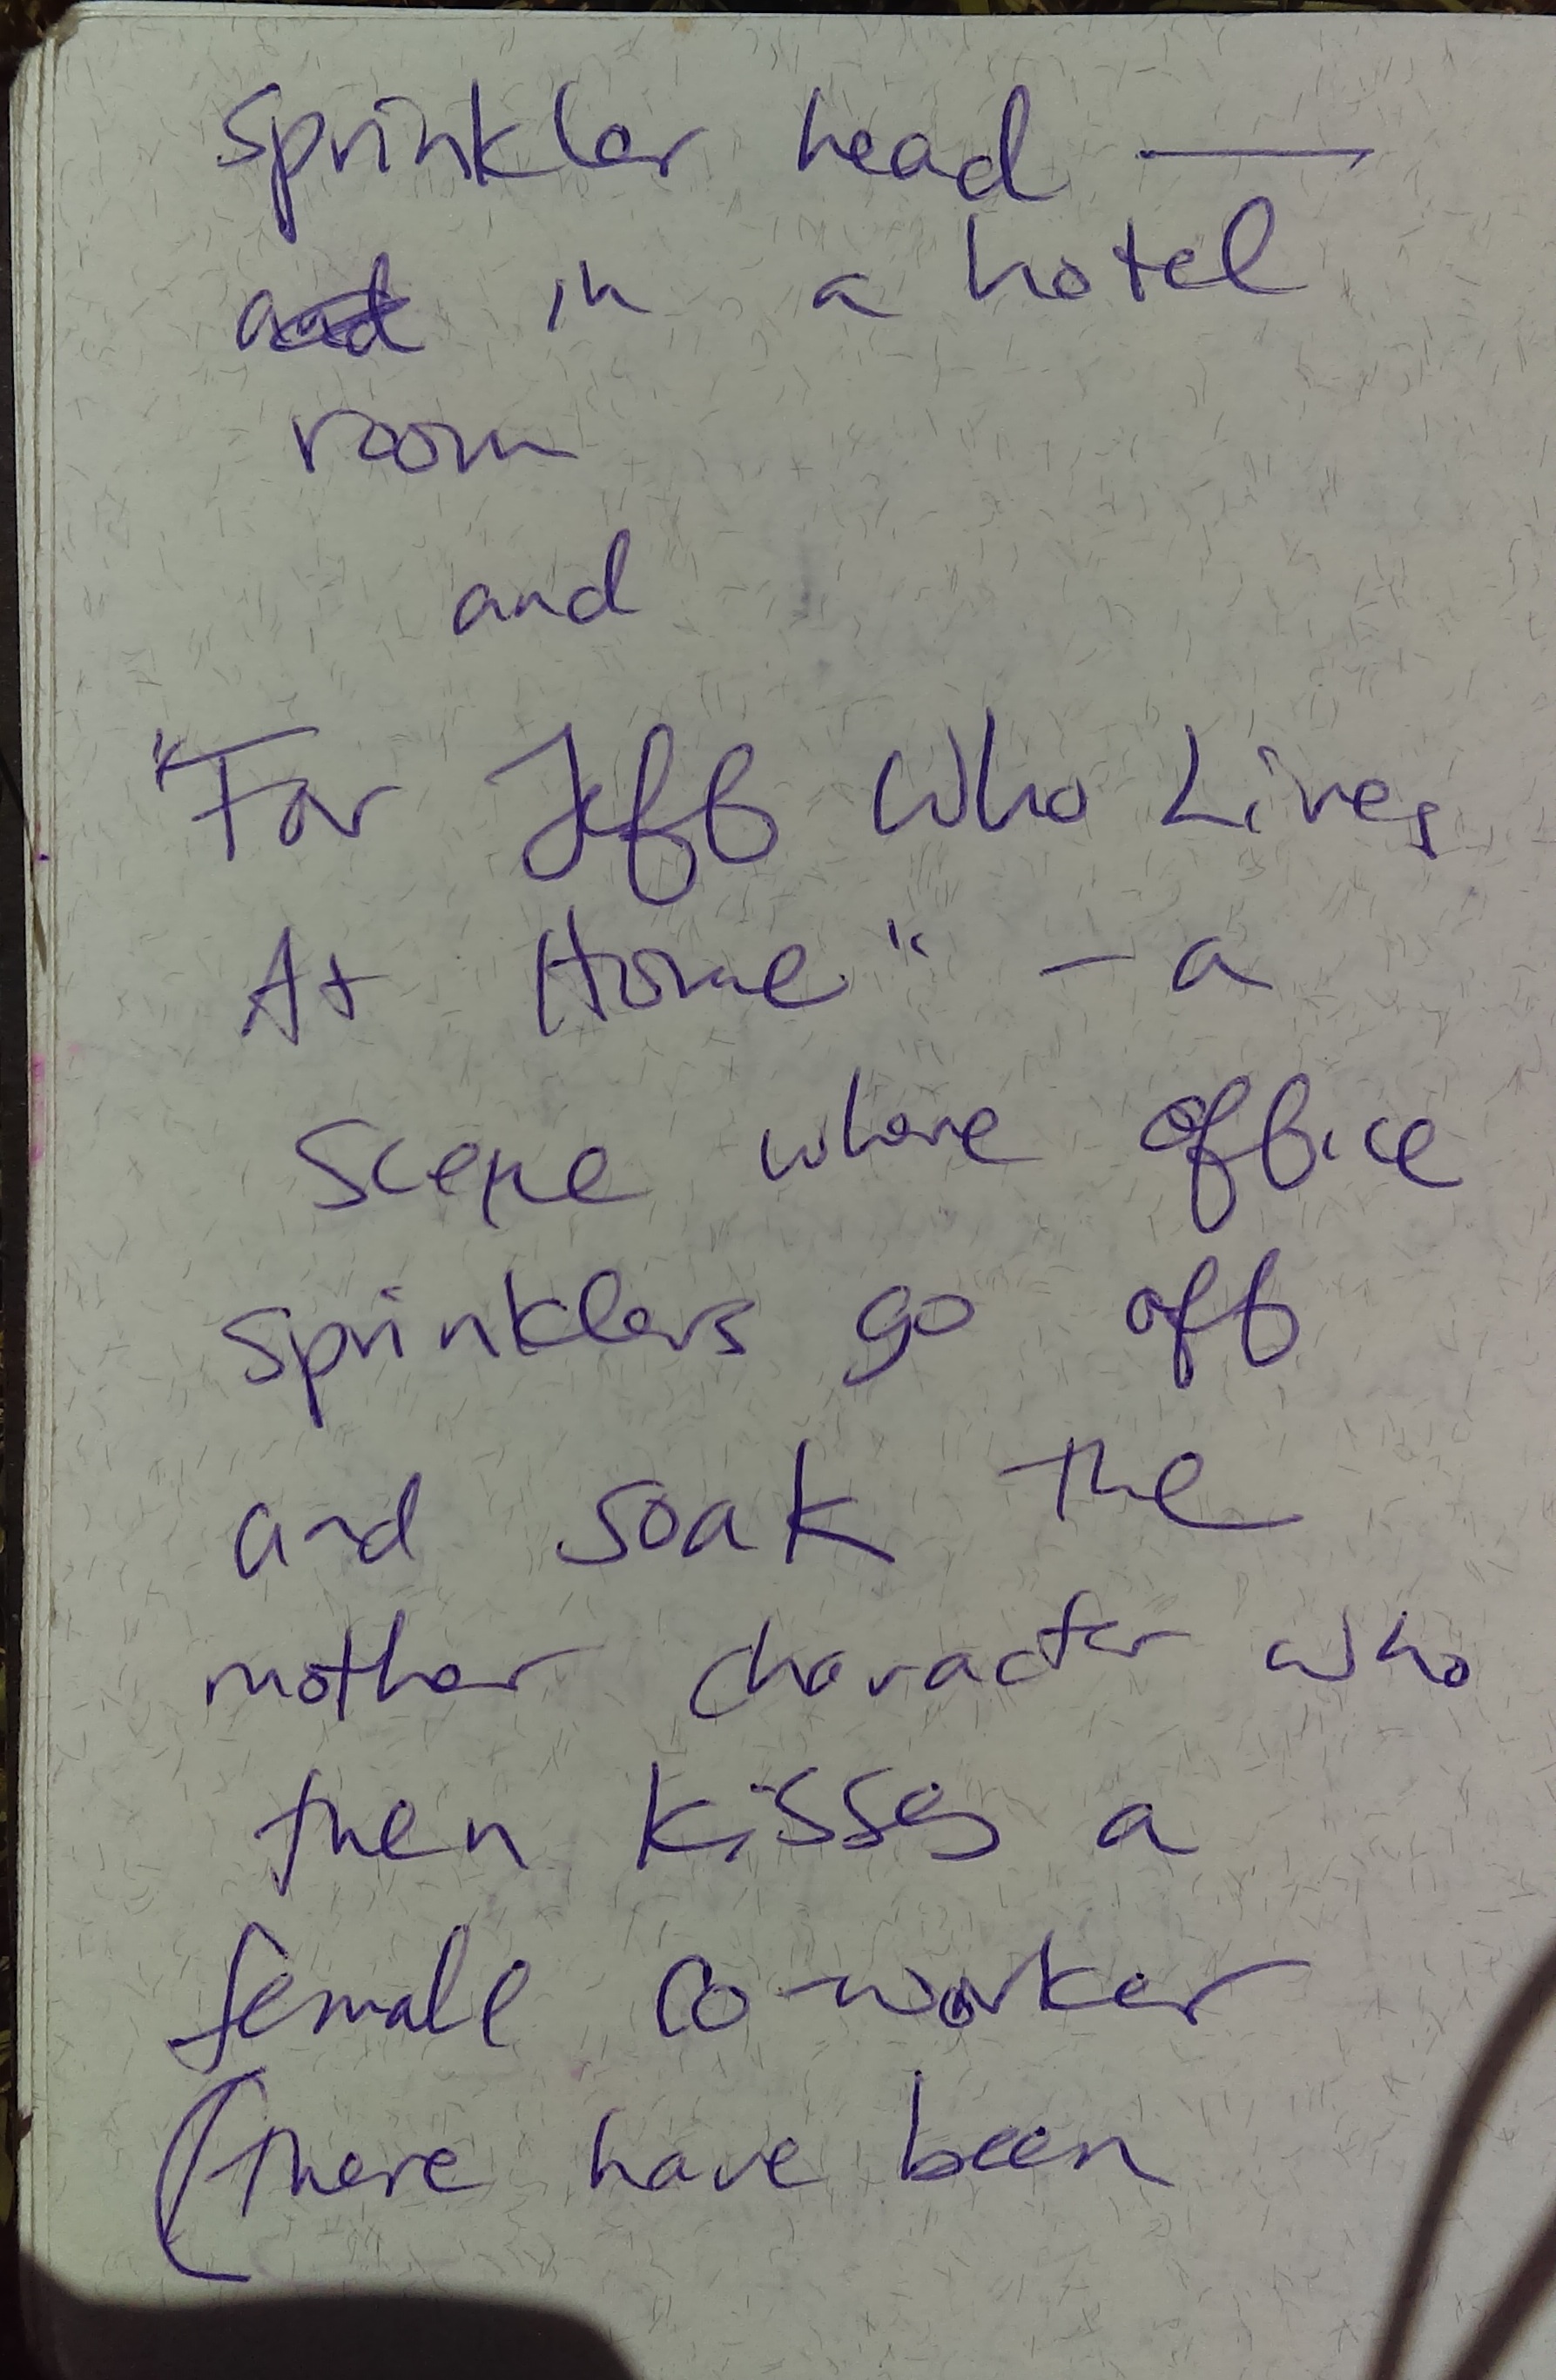 Sprinkler head —
in a hotel
room
and
"For Jeff Who Lives
At Home" - a
scene where office
sprinklers go off
and soak the
mother character who
then kisses a
female co-worker
(There have been